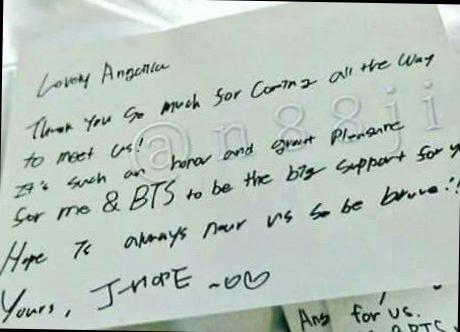 Lovely Angelica
Thank You So much for Coming all the Way
to meet us!
@n88ji
It's such an honor and great Pleasure
for me & BTS to be the big support for y
Hope Is always near us so be brave!!
Yours, J-HOPE ~♡♡
Ang for us.
BTS